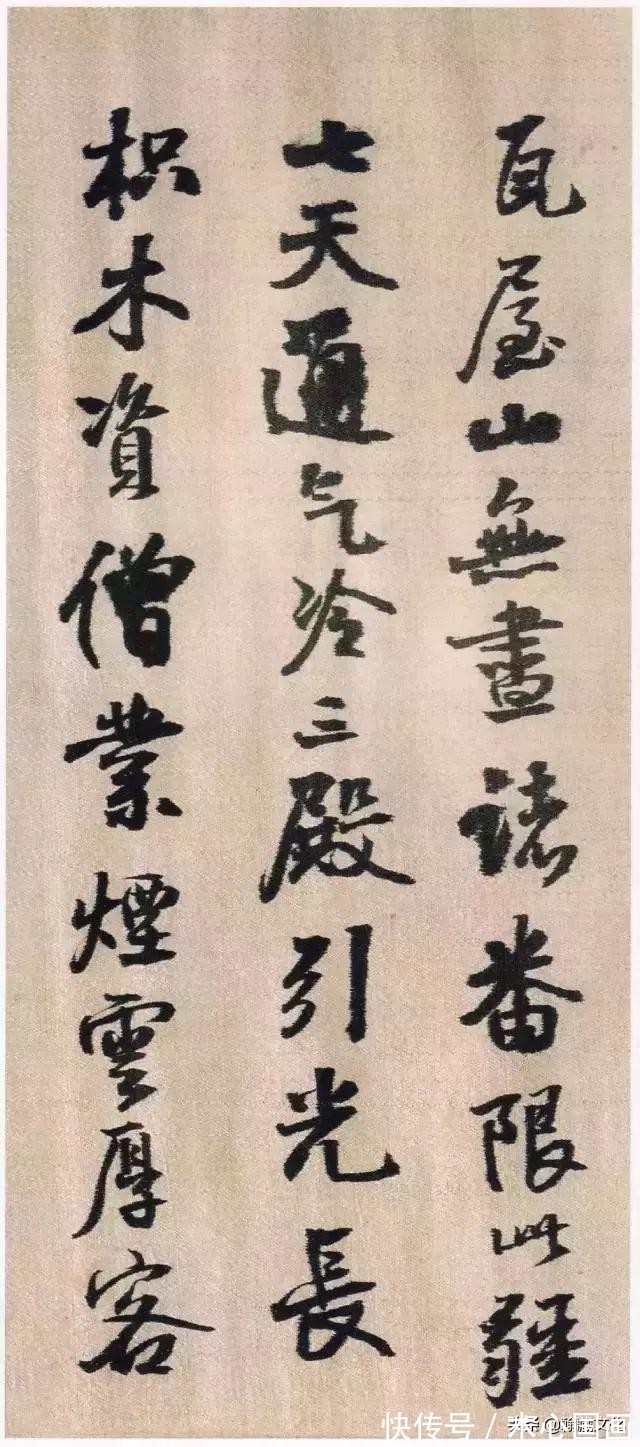 瓦屋山無盡諸番限此疆
七天通气冷三殿引光長
枳木資僧業煙雲厚客
快传号 /